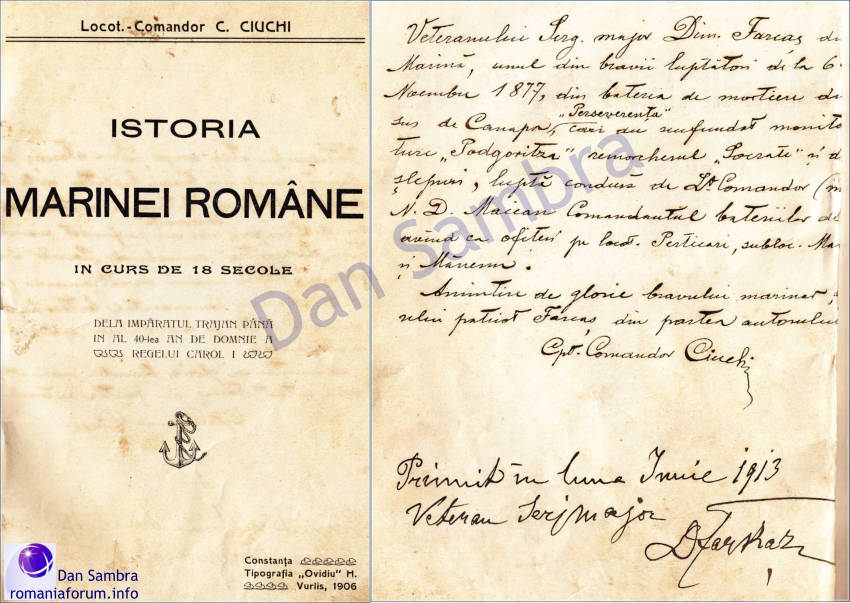 Locot.-Comandor C. CIUCHI
ISTORIA
MARINEI ROMÂNE
IN CURS DE 18 SECOLE
DELA IMPĂRATUL TRAJAN PÂNĂ
IN AL 40-lea AN DE DOMNIE A
REGELUI CAROL I
Constanța
Tipografia „Ovidiu" H.
Vurlis, 1906
Dan Sambra
romaniaforum.info
Veteranului Serg. major Dim. Farcaș de
Marină, unul din bravii luptători de la 6
Noembrie 1877, din bateria de mortiere de
„Perseverența"
sus de Canapa, cari au scufundat monito
„Podgoritza" remorcherul „Socrate" și d
șlepuri, luptă condusă de Lt. Comandor
N. D. Maican Comandantul bateriilor de
având ca ofițeri pe locot. Perticari, subloc. Ma
și Manescu.
Amintire de glorie bravului marinar,
patriot Farcaș, din partea autorului
Cpt. Comandor Ciuchi
Primit în luna Iunie 1913
Veteran Serjmajor
D Farkaz
Dan Sambra